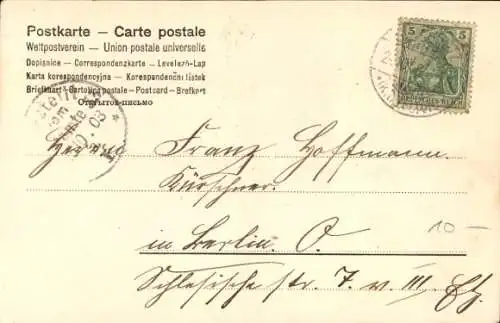 Postkarte — Carte postale
Weltpostverein — Union postale universelle
Dopisnice — Correspondenzkarte — Levelező-Lap
Karta korespondencyjna — Korespondenční lístek
Briefkaart — Cartolina postale — Postcard — Brefkort
Открытое-письмо
5 5
DEUTSCHES REICH
Herrn Franz Hoffmann.
Kürschner.
in Berlin. O.
Schlesische str. 7. v. III. Etg.
10 —